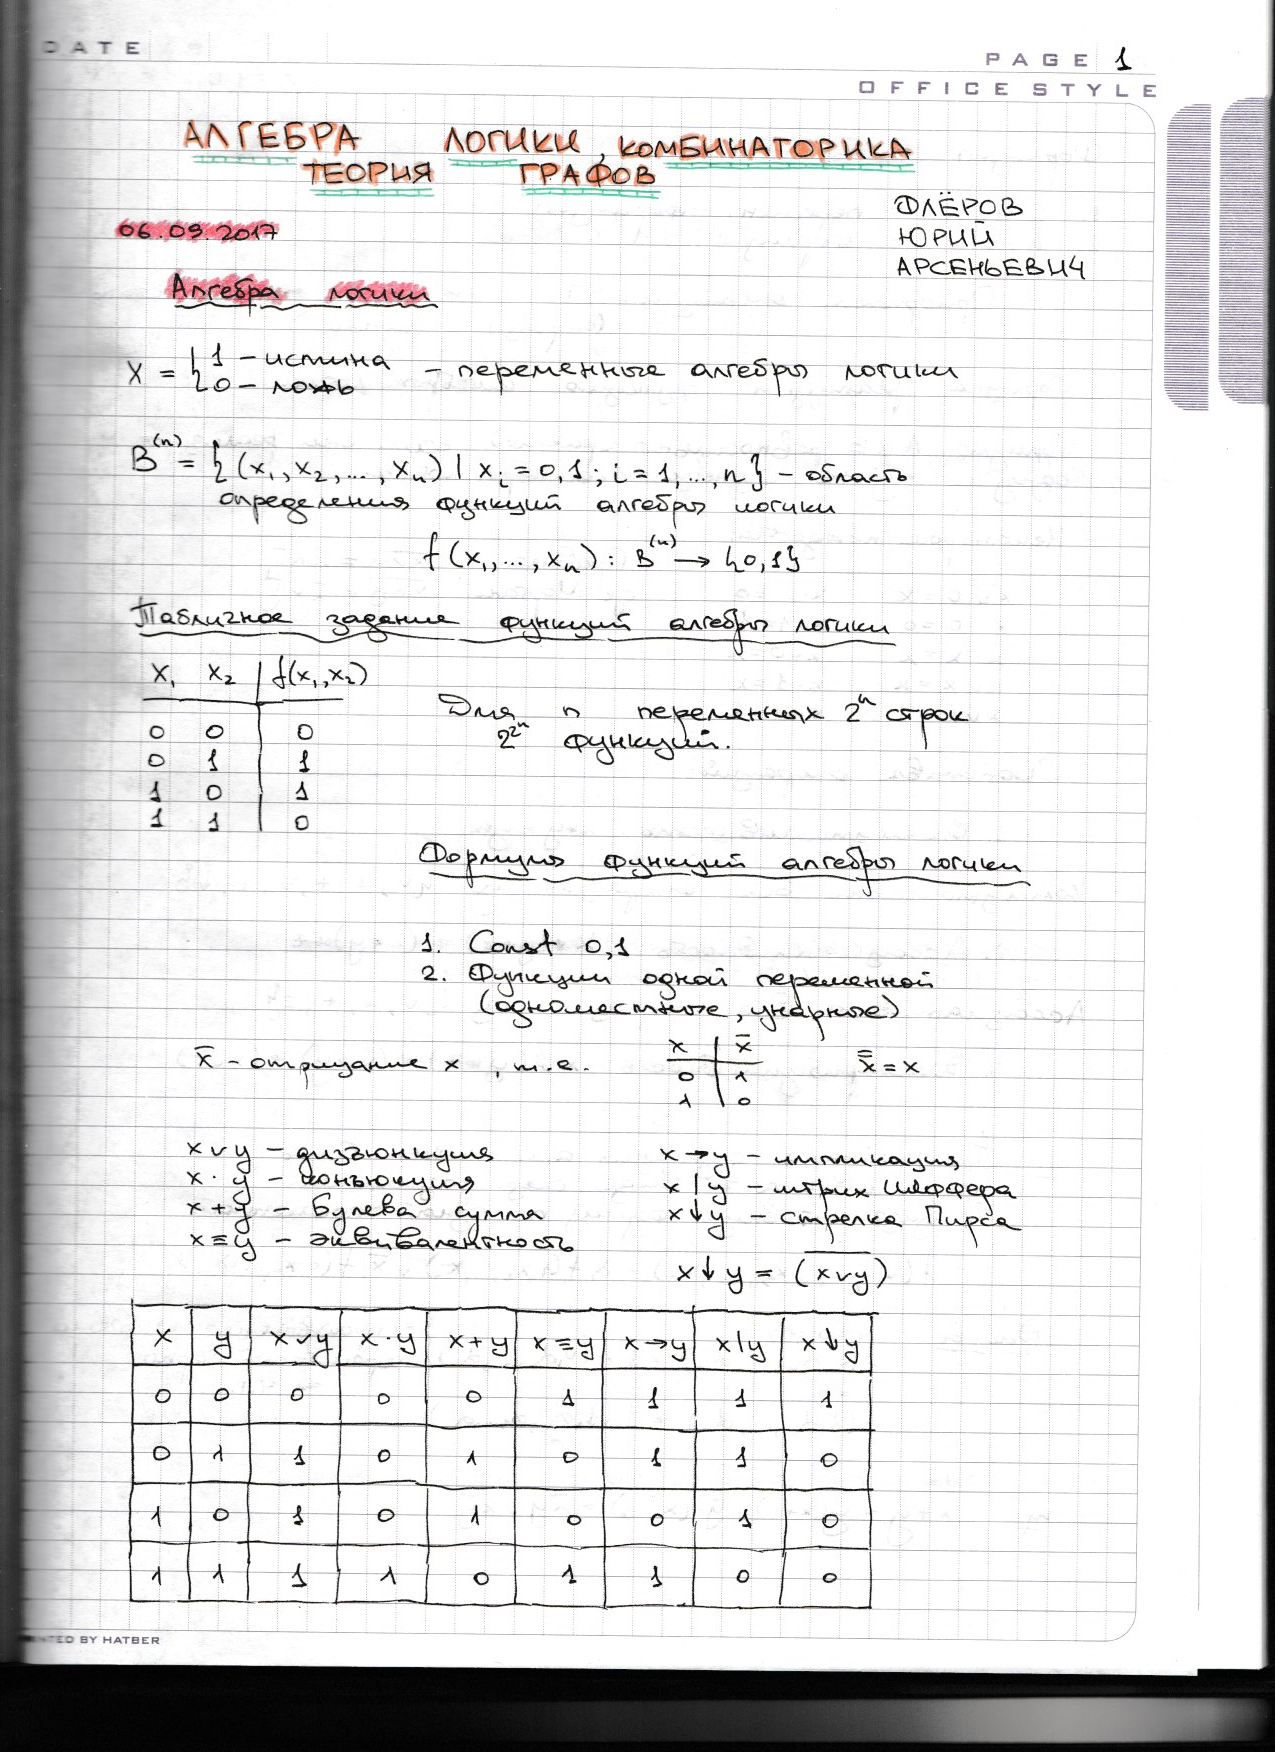 DATE
PAGE 1
OFFICE STYLE
АЛГЕБРА ЛОГИКИ, КОМБИНАТОРИКА
ТЕОРИЯ ГРАФОВ
ФЛЁРОВ
ЮРИЙ
АРСЕНЬЕВИЧ
06.09.2017
Алгебра логики
x = { 1 – истина
0 – ложь – переменные алгебры логики
B⁽ⁿ⁾ = {(x₁, x₂, ..., xₙ) | xᵢ = 0,1; i = 1, ..., n} – область
определения функций алгебры логики
f(x₁, ..., xₙ) : B⁽ⁿ⁾ → {0,1}
Табличное задание функций алгебры логики
x₁ x₂ | f(x₁,x₂)
0 0 | 0
0 1 | 1
1 0 | 1
1 1 | 0
Для n переменных 2ⁿ строк
2^2ⁿ функций.
Формулы функций алгебры логики
1. Const 0,1
2. Функции одной переменной
(одноместные, унарные)
x̄ – отрицание x, т.е.
x | x̄
0 | 1
1 | 0
x̿ = x
x∨y – дизъюнкция
x·y – конъюкция
x+y – Булева сумма
x≡y – эквивалентность
x→y – импликация
x|y – штрих Шеффера
x↓y – стрелка Пирса
x↓y = (x∨y)̅
x y x∨y x·y x+y x≡y x→y x|y x↓y
0 0 0 0 0 1 1 1 1
0 1 1 0 1 0 1 1 0
1 0 1 0 1 0 0 1 0
1 1 1 1 0 1 1 0 0
BY HATBER